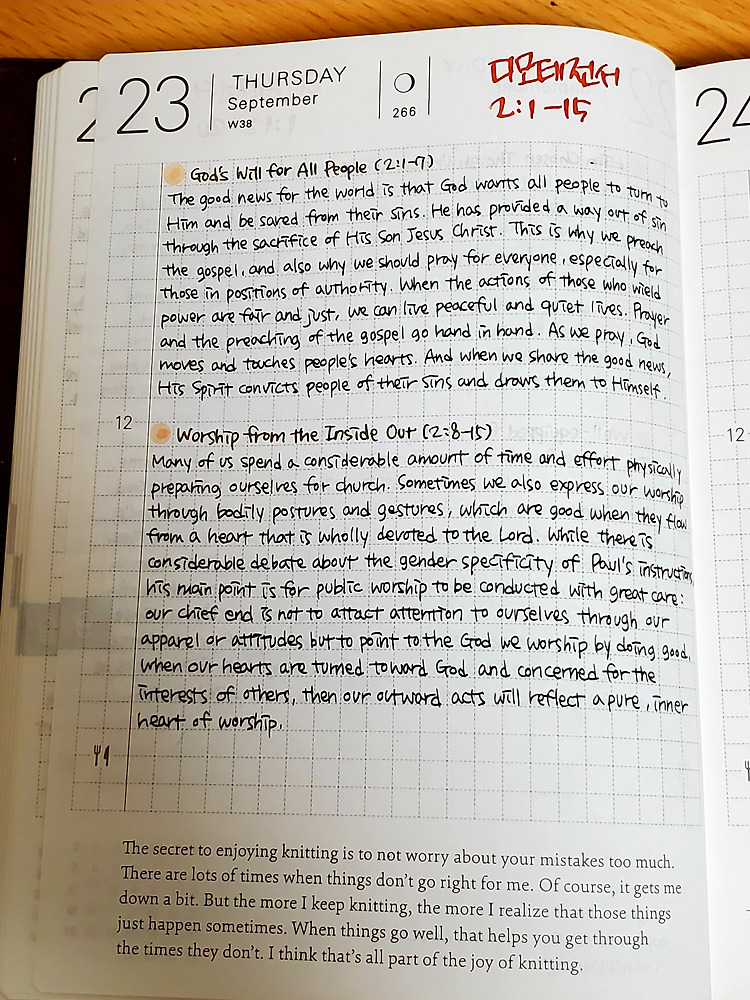 2
23
THURSDAY
September
W38
266
디모데전서
2:1-15
24
God's Will for All People (2:1-7)
The good news for the world is that God wants all people to turn to
Him and be saved from their sins. He has provided a way out of sin
through the sacrifice of His Son Jesus Christ. This is why we preach
the gospel, and also why we should pray for everyone, especially for
those in positions of authority. When the actions of those who wield
power are fair and just, we can live peaceful and quiet lives. Prayer
and the preaching of the gospel go hand in hand. As we pray, God
moves and touches people's hearts. And when we share the good news,
His Spirit convicts people of their sins and draws them to Himself.
12
12
Worship from the Inside Out (2:8-15)
Many of us spend a considerable amount of time and effort physically
preparing ourselves for church. Sometimes we also express our worship
through bodily postures and gestures, which are good when they flow
from a heart that is wholly devoted to the Lord. While there is
considerable debate about the gender specificity of Paul's instructions,
his main point is for public worship to be conducted with great care:
our chief end is not to attact attention to ourselves through our
apparel or attitudes but to point to the God we worship by doing good.
When our hearts are turned toward God and concerned for the
interests of others, then our outward acts will reflect a pure, inner
heart of worship.
The secret to enjoying knitting is to not worry about your mistakes too much.
There are lots of times when things don't go right for me. Of course, it gets me
down a bit. But the more I keep knitting, the more I realize that those things
just happen sometimes. When things go well, that helps you get through
the times they don't. I think that's all part of the joy of knitting.